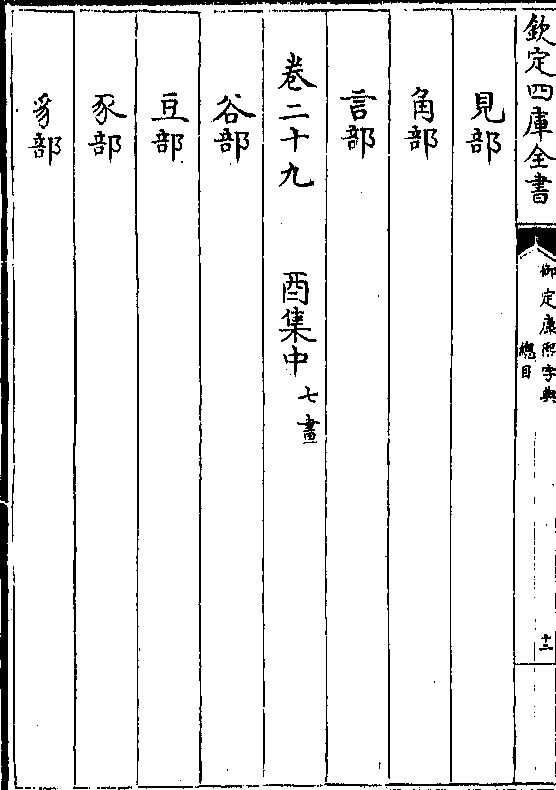 欽定四庫全書
御定康熙字典
總目
十三
見部
角部
言部
卷二十九 酉集中七畫
谷部
豆部
豕部
豸部